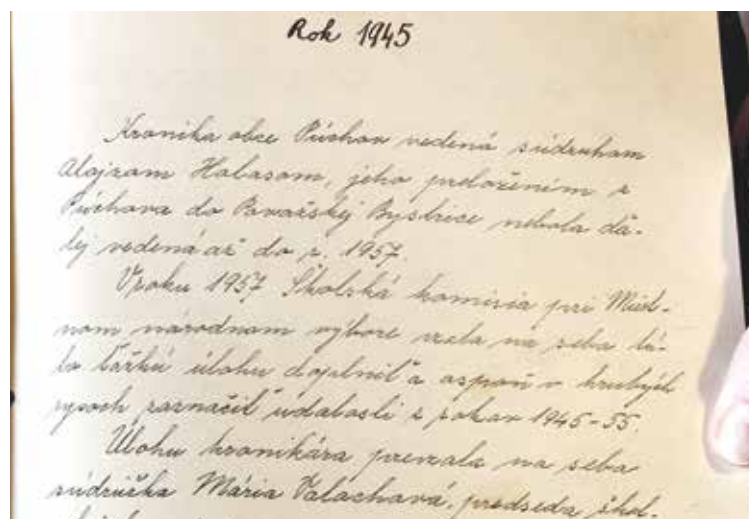 Rok 1945
Kronika obce Púchov vedená súdruhom
Alojzom Habasom, jeho preložením z
Púchova do Považskej Bystrice nebola ďa-
lej vedená až do r. 1957.
V roku 1957 Školská komisia pri Miest-
nom národnom výbore vzala na seba tú-
to ťažkú úlohu doplniť a aspoň v hrubých
rysoch zaznačiť udalosti z rokov 1945-55.
Úlohu kronikára prevzala na seba
súdružka Mária Valachová, predseda škol-